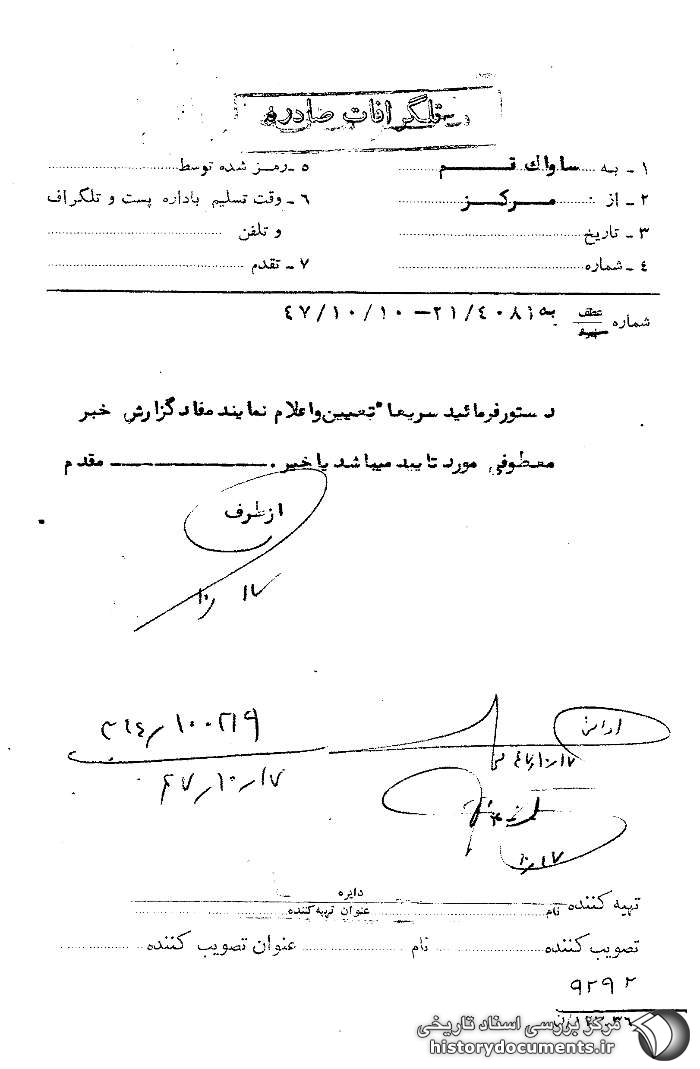 تلگرافات صادره
۱ - به ساواك قم
۵ - رمز شده توسط
۲ - از مركز
۶ - وقت تسلیم باداره پست و تلگراف و تلفن
۳ - تاریخ
۴ - شماره
۷ - تقدم
شماره عطف به ۲۱/٤۰۸ - ٤۷/۱۰/۱۰
دستور فرمائید سریعا تعیین و اعلام نمایند مفاد گزارش خبر
معطوفی مورد تایید میباشد یا خیر . مقدم
از طرف
۱۰/۱۷
۴۷/۱۰/۱۷
۴۷/۱۰/۱۷
۱۰/۱۷
دایره
تهیه کننده نام عنوان تهیه کننده
تصویب کننده نام عنوان تصویب کننده
۹۲۹۲
مرکز بررسی اسناد تاریخی
historydocuments.ir